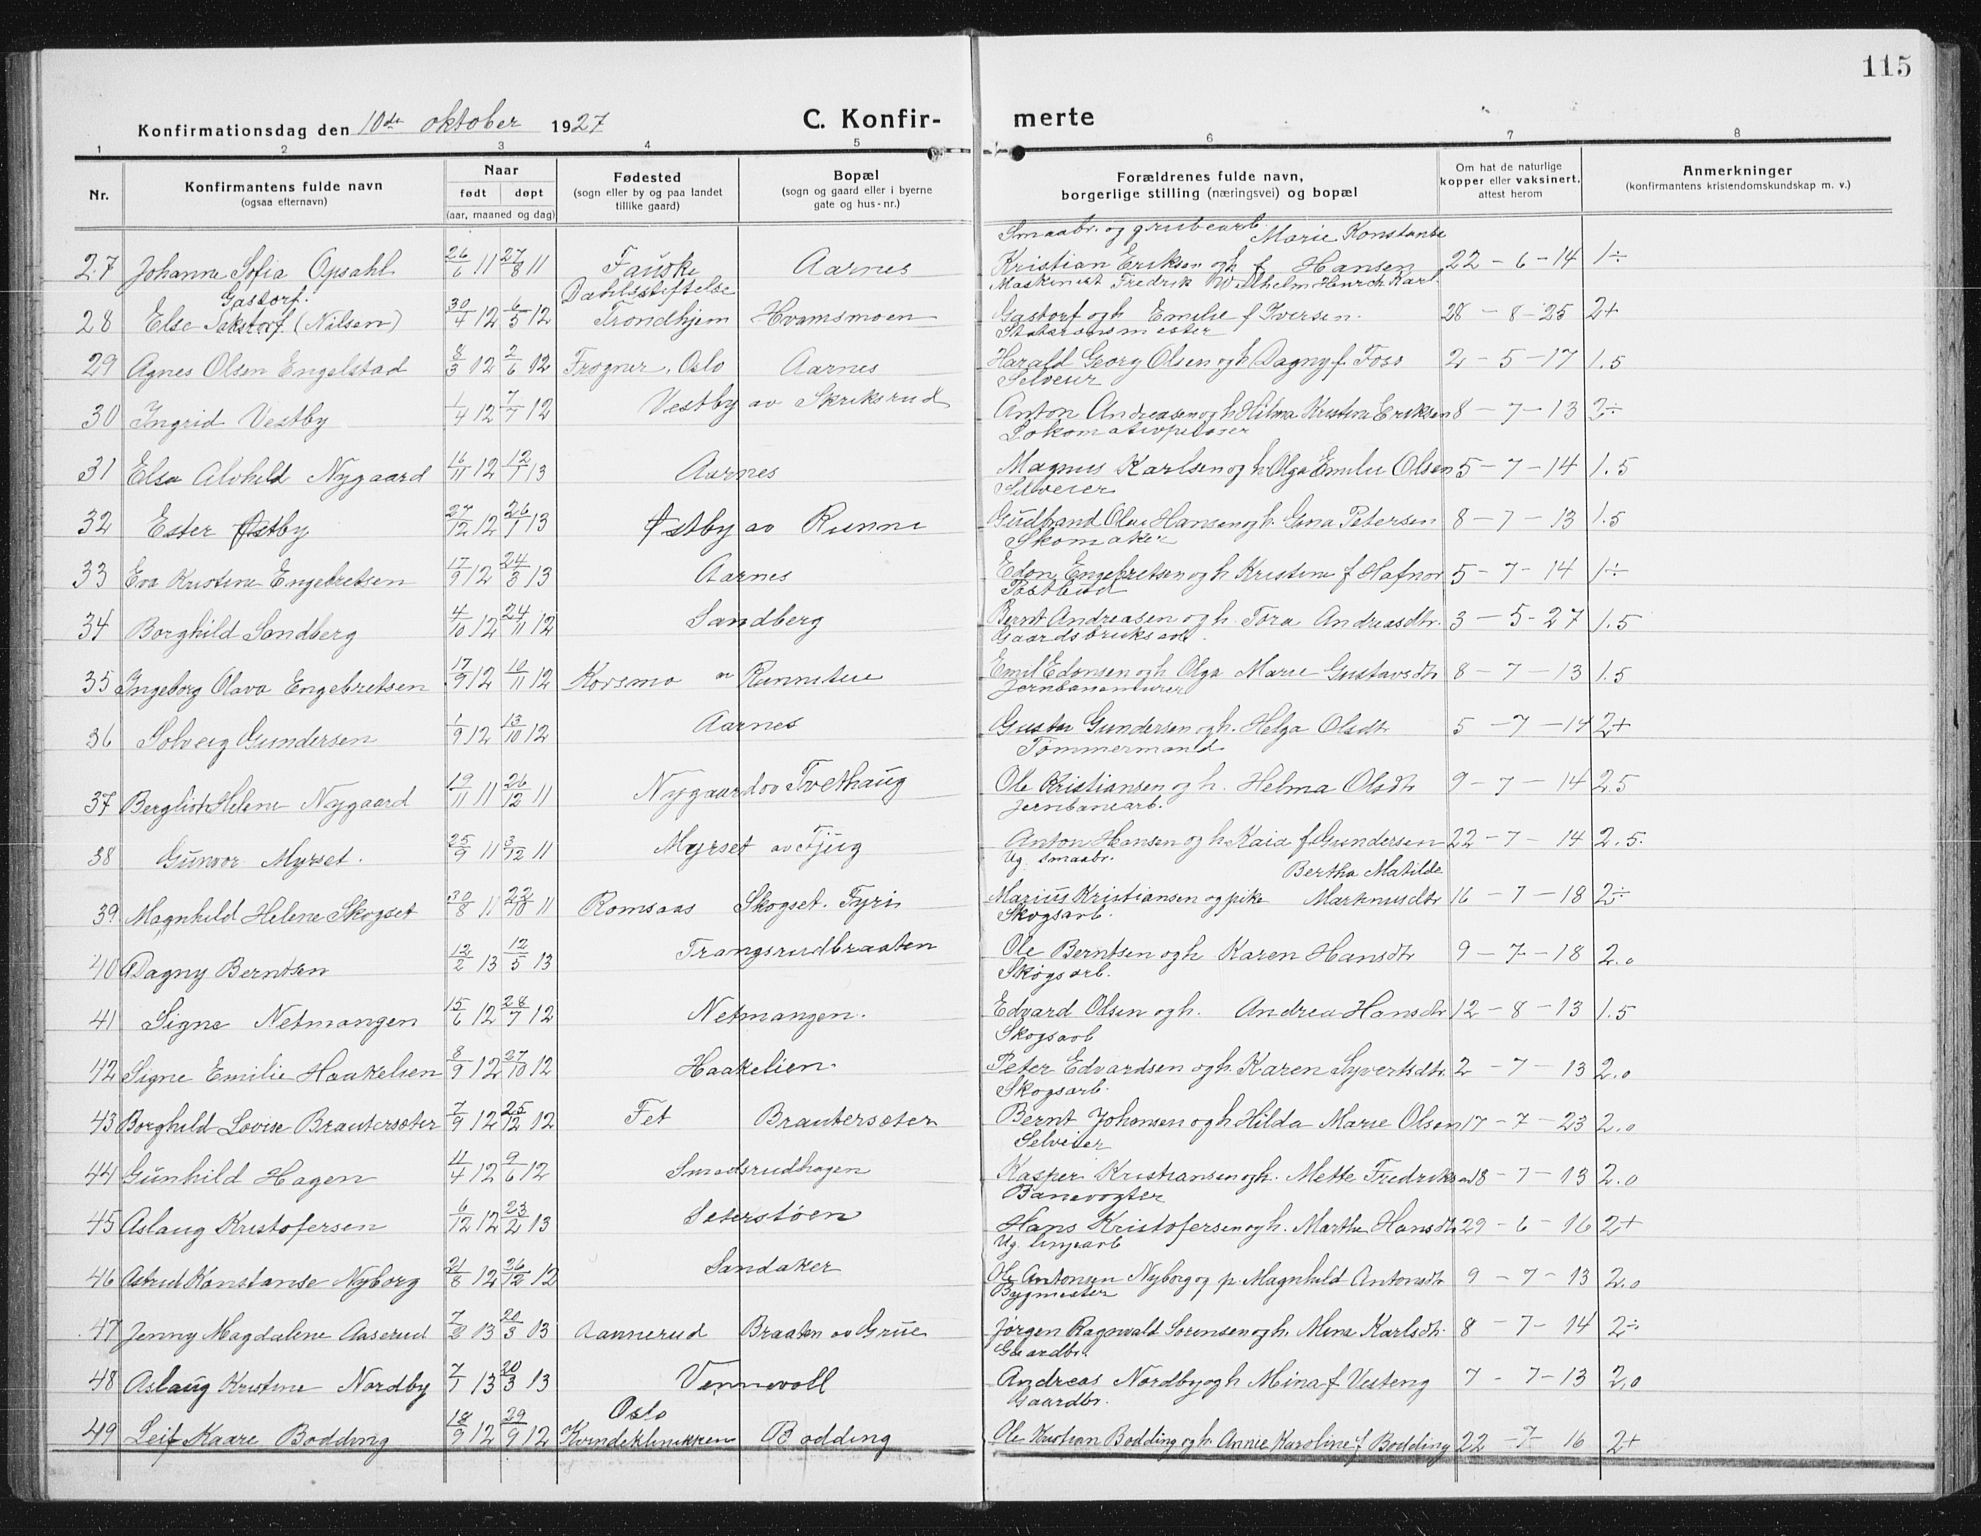 115
Konfirmationsdag den 10de oktober 1927
C. Konfirmerte
1 2 3 4 5 6 7 8
Nr. Konfirmantens fulde navn (ogsaa efternavn) Naar født døpt (aar, maaned og dag) Fødested (sogn eller by og paa landet tillike gaard) Bopæl (sogn og gaard eller i byerne gate og hus-nr.) Forældrenes fulde navn, borgerlige stilling (næringsvei) og bopæl Om hat de naturlige kopper eller vaksinert. attest herom Anmerkninger (konfirmantens kristendomskundskap m. v.)
Smaabr. og grubearb. Marie Konstanse
27 Johanne Sofia Opsahl 26/6 11 27/8 11 Fauske Aarnes Kristian Eriksen og h. f. Hansen 22-6-14 1÷
Gastorf. Dahlsstiftelse Maskinist Fredrik Wilhelm Hinrch Karl
28 Else (Nilsen) 30/4 12 6/5 12 Trondhjem Hvamsmoen Gastorf og h Emilie f Iversen. 28-8-25 2+
29 Agnes Olsen Engelstad 8/3 12 2/6 12 Frogner, Oslo Aarnes Harald Georg Olsen og h Dagny f. Foss 2-5-17 1.5
Selveier
30 Ingrid Vestby 1/4 12 7/7 12 Vestby av Skriksrud Anton Andreasen og h Hilma Kristina Eriksen 8-7-13 2÷
Lokomotivpudser
31 Elsa Alvhild Nygaard 16/11 12 12/1 13 Aarnes Magnus Karlsen og h Olga Emilie Olsen 5-7-14 1.5
Selveier
32 Ester Østby 27/12 12 26/1 13 Østby av Runni Gudbrand Olav Hansen og h. Gina Petersen 8-7-13 1.5
Skomaker
33 Eva Kristine Engebretsen 17/9 12 24/3 13 Aarnes Edon Engebretsen og h Kristine f Hafnor 5-7-14 1÷
Postbud
34 Borghild Sandberg 4/10 12 24/11 12 Sandberg Bernt Andreasen og h. Tora Andreasdtr. 3-5-27 1.5
Gaardsbruksarb.
35 Ingeborg Olava Engebretsen 17/9 12 10/11 12 Korsmo av Runnitue Emil Edonsen og h Olga Marie Gustavsdtr 8-7-13 1.5
36 Solveig Gundersen 1/9 12 13/10 12 Aarnes Gustav Gundersen og h. Helga Olsdtr 5-7-14 2+
Tømmermand
37 Bergliot Helene Nygaard 19/11 11 26/12 11 Nygaard av Tvethaug Ole Kristiansen og h. Helma Olsdtr 9-7-14 2.5
Jernbanearb.
38 Gunvor Myrset. 25/9 11 3/12 11 Myrset av Fjug Anton Hansen og h Kaia f Gundersen 22-7-14 2.5.
Ug. smaabr. Bertha Matilde
39 Magnhild Helene Skogset 30/8 11 22/10 11 Romsaas Skogset. Fyri Marius Kristiansen og pike Markusdtr 16-7-18 2÷
Skogsarb.
40 Dagny Berntsen 12/2 13 12/5 13 Trangsrudbraaten Ole Berntsen og h Karen Hansdtr 9-7-18 2.0
Skogsarb.
41 Signe Netmangen 15/6 12 28/7 12 Netmangen. Edvard Olsen og h. Andrea Hansdtr 12-8-13 1.5
Skogsarb
42 Signe Emilie Haakelien 8/9 12 27/10 12 Haakelien. Peter Edvardsen og h. Karen Syvertsdtr 2-7-13 2.0
Skogsarb.
43 Borghild Lovise Brautersæter 7/9 12 25/12 12 Fet Brautersæter Bernt Johansen og h Hilda Marie Olsen 17-7-23 2.0
Selveier
44 Gunhild Hagen 11/4 12 9/6 12 Smedsrudhagen Kasper Kristiansen og h. Mette Fredriksen 18-7-13 2.0
Banevogter
45 Aslaug Kristofersen 6/12 12 23/2 13 Seterstøen Hans Kristofersen og h. Marthe Hansdtr 29-6-16 2+
Ug. linjearb
46 Astrid Konstanse Nyborg 21/8 12 26/12 12 Sandaker Ole Antonsen Nyborg og p. Magnhild Antonsdtr 9-7-13 2.0
Bygmester
47 Jenny Magdalene Aaserud 7/2 13 20/3 13 Aannerud Braaten av Grue Jørgen Ragnvald Sørensen og h. Mina Karlsdtr. 8-7-14 2÷
Gaardbr.
48 Aslaug Kristine Nordby 7/1 13 20/3 13 Vennevoll Andreas Nordby og h Mina f Vesteng 7-7-13 2.0
Oslo Gaardbr.
49 Leif Kaare Bodding 18/9 12 29/9 12 Kvindeklinikken Bodding Ole Kristian Bodding og h. Annie Karoline f Bodding 22-7-16 2+